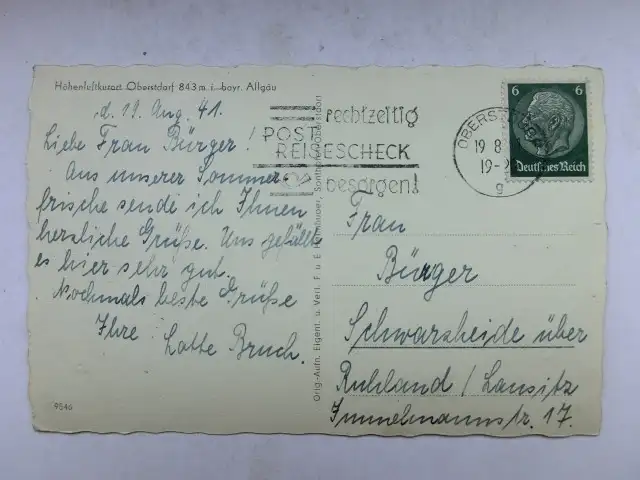 Höhenluftkurort Oberstdorf 843 m. i. bayr. Allgäu
d. 19. Aug. 41.
Liebe Frau Bürger!
Aus unserer Sommer-
frische sende ich Ihnen
herzliche Grüße. Uns gefällt
es hier sehr gut.
Nochmals beste Grüße
Ihre Lotte Bruch.
9546
Orig.-Aufn. Eigent. u. Verl. F. u. E. Oberstdorf
rechtzeitig
POST
REISESCHECK
besorgen!
OBERSTDORF
19 8
19-
g
6 6
Deutsches Reich
Frau
Bürger
Schwarzheide über
Ruhland / Lausitz
Immelmannstr. 17.